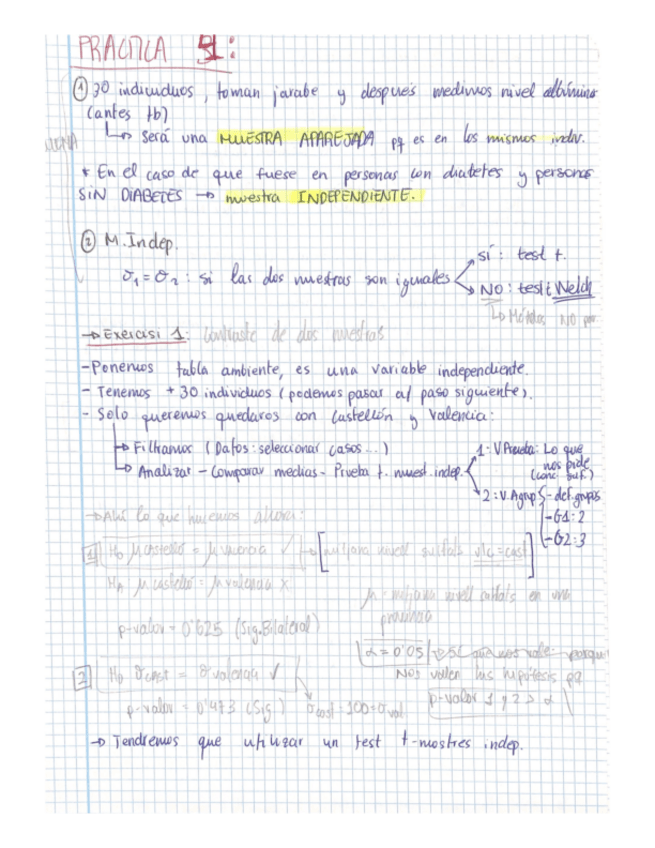 PRACTICA 1:
① 30 individuos, toman jarabe y después medimos nivel albúmina
(antes tb)
↳ Será una MUESTRA APAREJADA pq es en los mismos indiv.
* En el caso de que fuese en personas con diabetes y personas
SIN DIABETES → muestra INDEPENDIENTE.
② M. Indep.
σ₁ = σ₂ : si las dos muestras son iguales
sí : test t.
NO : test t Welch
↳ Métodos NO
→ Exercisi 1: Contraste de dos muestras
- Ponemos tabla ambiente, es una variable independiente.
- Tenemos + 30 individuos (podemos pasar al paso siguiente).
- Solo queremos quedaros con Castellón y Valencia:
↳ Filtramos (Datos: seleccionar casos...)
↳ Analizar - Comparar medias - Prueba t. muest. indep.
1: V Prueba: Lo que
nos pide
(conc. sulf.)
2: V. Agrup - def. grupos
- G1: 2
- G2: 3
→ Ahí lo que hacemos ahora:
1 H₀ μ castelló = μ valencia ✓ → mitjana nivel sulfats
Hₐ μ castelló = μ valencia x
μ = mitjana nivell sulfats en una
provincia
p-valor = 0'625 (Sig. Bilateral)
α = 0'05 → Sí que nos vale porque
2 H₀ σ cast = σ valencia ✓
Nos valen las hipótesis pq
p-valor 1 y 2 > α
p-valor = 0'473 (Sig.) σ cast = 100 = σ val
→ Tendremos que utilizar un test t-mostres indep.